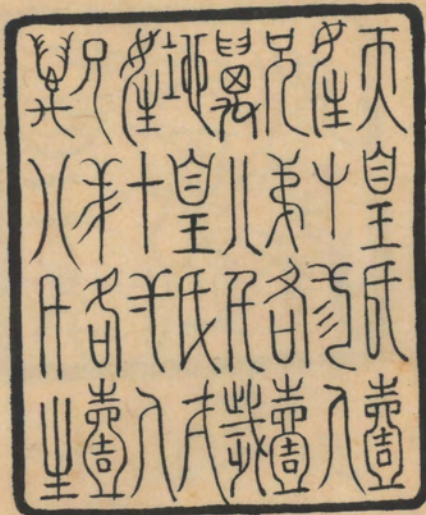 天皇氏壹
姓十參人
兄弟各壹
萬八千歲
地皇氏
姓十人
兄弟各壹
八千